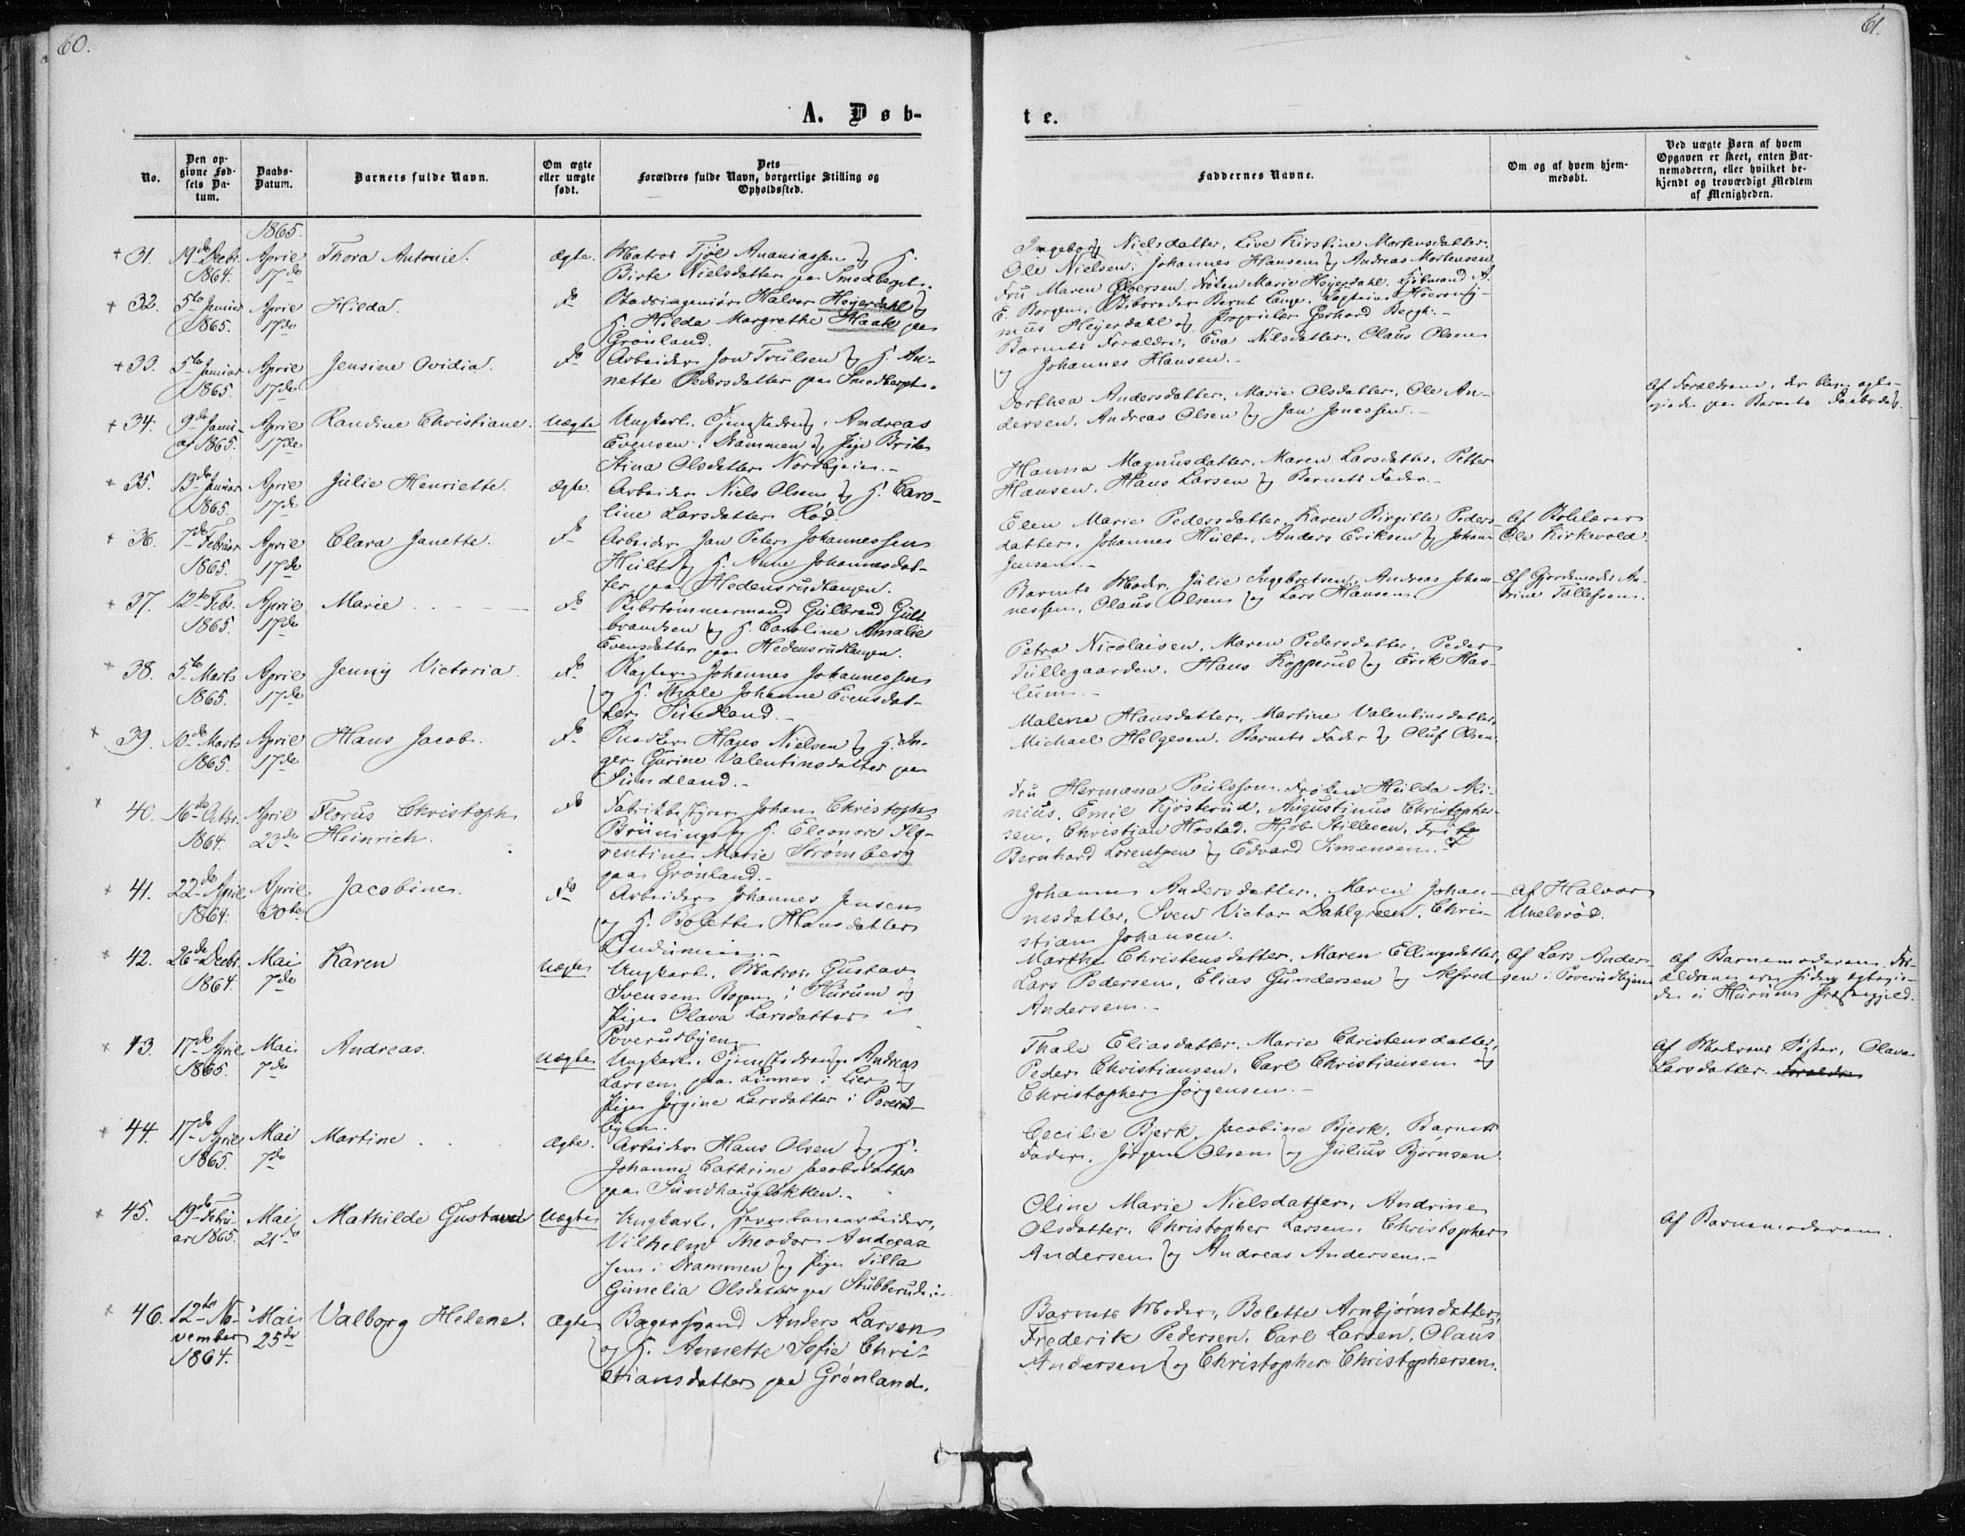 60.
61.
A. Døb-
te.
No.
Den op-
givne Fød-
sels Da-
tum.
Daabs-
Datum.
Barnets fulde Navn.
Om ægte
eller uægte
født.
Dets
Forældres fulde Navn, borgerlige Stilling og
Opholdssted.
Faddernes Navne.
Om og af hvem hjem-
medøbt.
Ved uægte Børn af hvem
Opgaven er skeet, enten Bar-
nemoderen, eller hvilket be-
kjendt og troværdigt Medlem
af Menigheden.
1865.
31. 19de Decbr. 1864. April 17de Thora Antonie. Ægte.
Matros Tjøl Ananiassen og H.
Birte Nielsdatter paa Smedberget.
Ingeborg Nielsdatter, Live Kirstine Mortensdatter,
Ole Nielsen, Johannes Hansen og Andreas Mortensen
32. 5te Januar 1865. April 17de Hilda. do
Stadsingeniør Halvor Heyerdahl og
H. Hilda Margrethe Haak paa
Grønland.
Fru Maren Iversen, Frøken Marie Heyerdahl, Kjøbmand A.
E. Borgen, Skibsreder Bernt Lange, Captain Hierony-
mus Heyerdahl og Proprietær Gerhard Bergh.-
33. 5te Januar 1865. April 17de Jensine Ovidia. do
Arbeider Jon Trulsen og H. An-
nette Pedersdatter paa Smedberget.
Barnets Forældre, Eva Nilsdatter, Olaus Olsen
og Johannes Hansen.-
34. 9de Janu-
ar 1865. April 17de Randine Christiane. Uægte
Ungkarl, Tjenestedreng, Andreas
Evensen i Drammen og Pige Brite
Stina Olsdatter Nordbyeie.-
Dorthea Andersdatter, Marie Olsdatter, Ole An-
dersen, Andreas Olsen og Jan Jonassen.-
Af Forældrene, der bleve ægte-
viede paa Barnets Daabsdag.
35. 13de Januar 1865. April 17de Julie Henriette. Ægte.
Arbeider Niels Olsen og H. Caro-
line Larsdatter Rød.
Hanna Magnusdatter, Maren Larsdatter, Petter
Hansen, Hans Larsen og Barnets Fader.-
36. 7de Februar 1865. April 17de Clara Janette. do
Arbeider Jan Peter Johannessen
Hult og H. Anne Johannesdat-
ter paa Hedensrudtangen.
Elen Marie Pedersdatter, Karen Birgitte Peders-
datter, Johannes Hult, Anders Eriksen og Johan
Jensen.-
Af Skolelærer
Ole Kirkevold.
37. 12te Febr. 1865. April 17de Marie. do
Skibstømmermand Gulbrand Gul-
brandsen og H. Caroline Amalie
Evensdatter paa Hedensrudtangen.
Barnets Moder, Julie Ingebretsen, Andreas Johan-
nessen, Olaus Olsen og Lars Hansen.
Af Gjordemoder An-
drine Tollefsen.
38. 5te Marts 1865. April 17de Jenny Victoria. do
Slagter Johannes Johannessen
og H. Thale Johanne Evensdat-
ter Sundland.-
Petra Nicolaisen, Maren Pedersdatter, Peder
Tullegaarden, Hans Kopperud og Erik Has-
lum.-
39. 10de Marts 1865. April 17de Hans Jacob. do
Snedker Hans Nielsen og H. In-
ger Gurine Valentinsdatter paa
Sundland.-
Malena Hansdatter, Martine Valentinsdatter,
Michael Helgesen, Barnets Fader og Oluf Olsen.
40. 16de Octbr. 1864. April 23de Florus Christoph
Heinrich. do
Fabrikbestyrer Johan Christoph
Brünings og H. Eleonore Flo-
rentine Marie Strømberg
paa Grønland.-
Fru Hermana Poulsson, Frøken Hulda
Emil Kjøsterud, Augustinus Christopher-
sen, Christian Hostad, Hjb. Stillesen, Fritz
Bernhard Lorentzen og Edvard Simensen.-
41. 22de April 1864. April 30te Jacobine. do
Arbeider Johannes Jensen
og H. Bolette Hansdatter
Johanne Andersdatter, Maren Johan-
nesdatter, Sven Victor Dahlgreen, Chri-
stian Johansen.
Af Halvor
Unelsrød.
42. 26de Decbr. 1864. Mai 7de Karen Uægte
Ungkarl, Matros Gustav
Svensen Bogen i Hurum og
Pige Olava Larsdatter i
Poverudbyen.
Marthe Christensdatter, Maren Ellingsdatter,
Lars Pedersen, Elias Gundersen og Alfred
Andersen.-
Af Lars Ander-
sen i Poverudbyen
Af Barnemoderen. For-
ældrene ere siden ægtevie-
de i Hurums Præstegjeld.
43. 17de April 1865. Mai 7de Andreas. Uægte
Ungkarl, Tjenestedreng Andreas
Larsen paa Linnes i Lier og
Pige Jørgine Larsdatter i Poverud-
byen.
Thale Eliasdatter, Marie Christensdatter,
Peder Christiansen, Carl Christiansen og
Christopher Jørgensen.-
Af Moderens Søster, Olava
Larsdatter. Forældre
44. 17de April 1865. Mai 7de Martine. Ægte.
Arbeider Hans Olsen og H.
Johanne Cathrine Jacobsdatter
paa Sundhaugløkken.-
Cecilie Bjerk, Jacobine Bjerk, Barnets
Fader, Jørgen Olsen og Julius Bjørnsen.
45. 19de Febru-
ar 1865. Mai 21de Mathilde Gustava Uægte
Ungkarl, Jernbanearbeider,
Vilhelm Theodor Andreas-
sen i Drammen og Pige Tilla
Gunelia Olsdatter paa Stubberudeie
Oline Marie Nielsdatter, Andrine
Olsdatter, Christopher Larsen, Christopher
Andersen og Andreas Andersen.-
Af Barnemoderen.
46. 12te No-
vember 1864. Mai 25de Valborg Helene. Ægte
Bagersvend Anders Larsen
og H. Annette Sofie Chri-
stiansdatter paa Grønland.
Barnets Moder, Bolette Arnbjørnsdatter,
Frederik Pedersen, Carl Larsen, Olaus
Andersen og Christopher Christophersen.